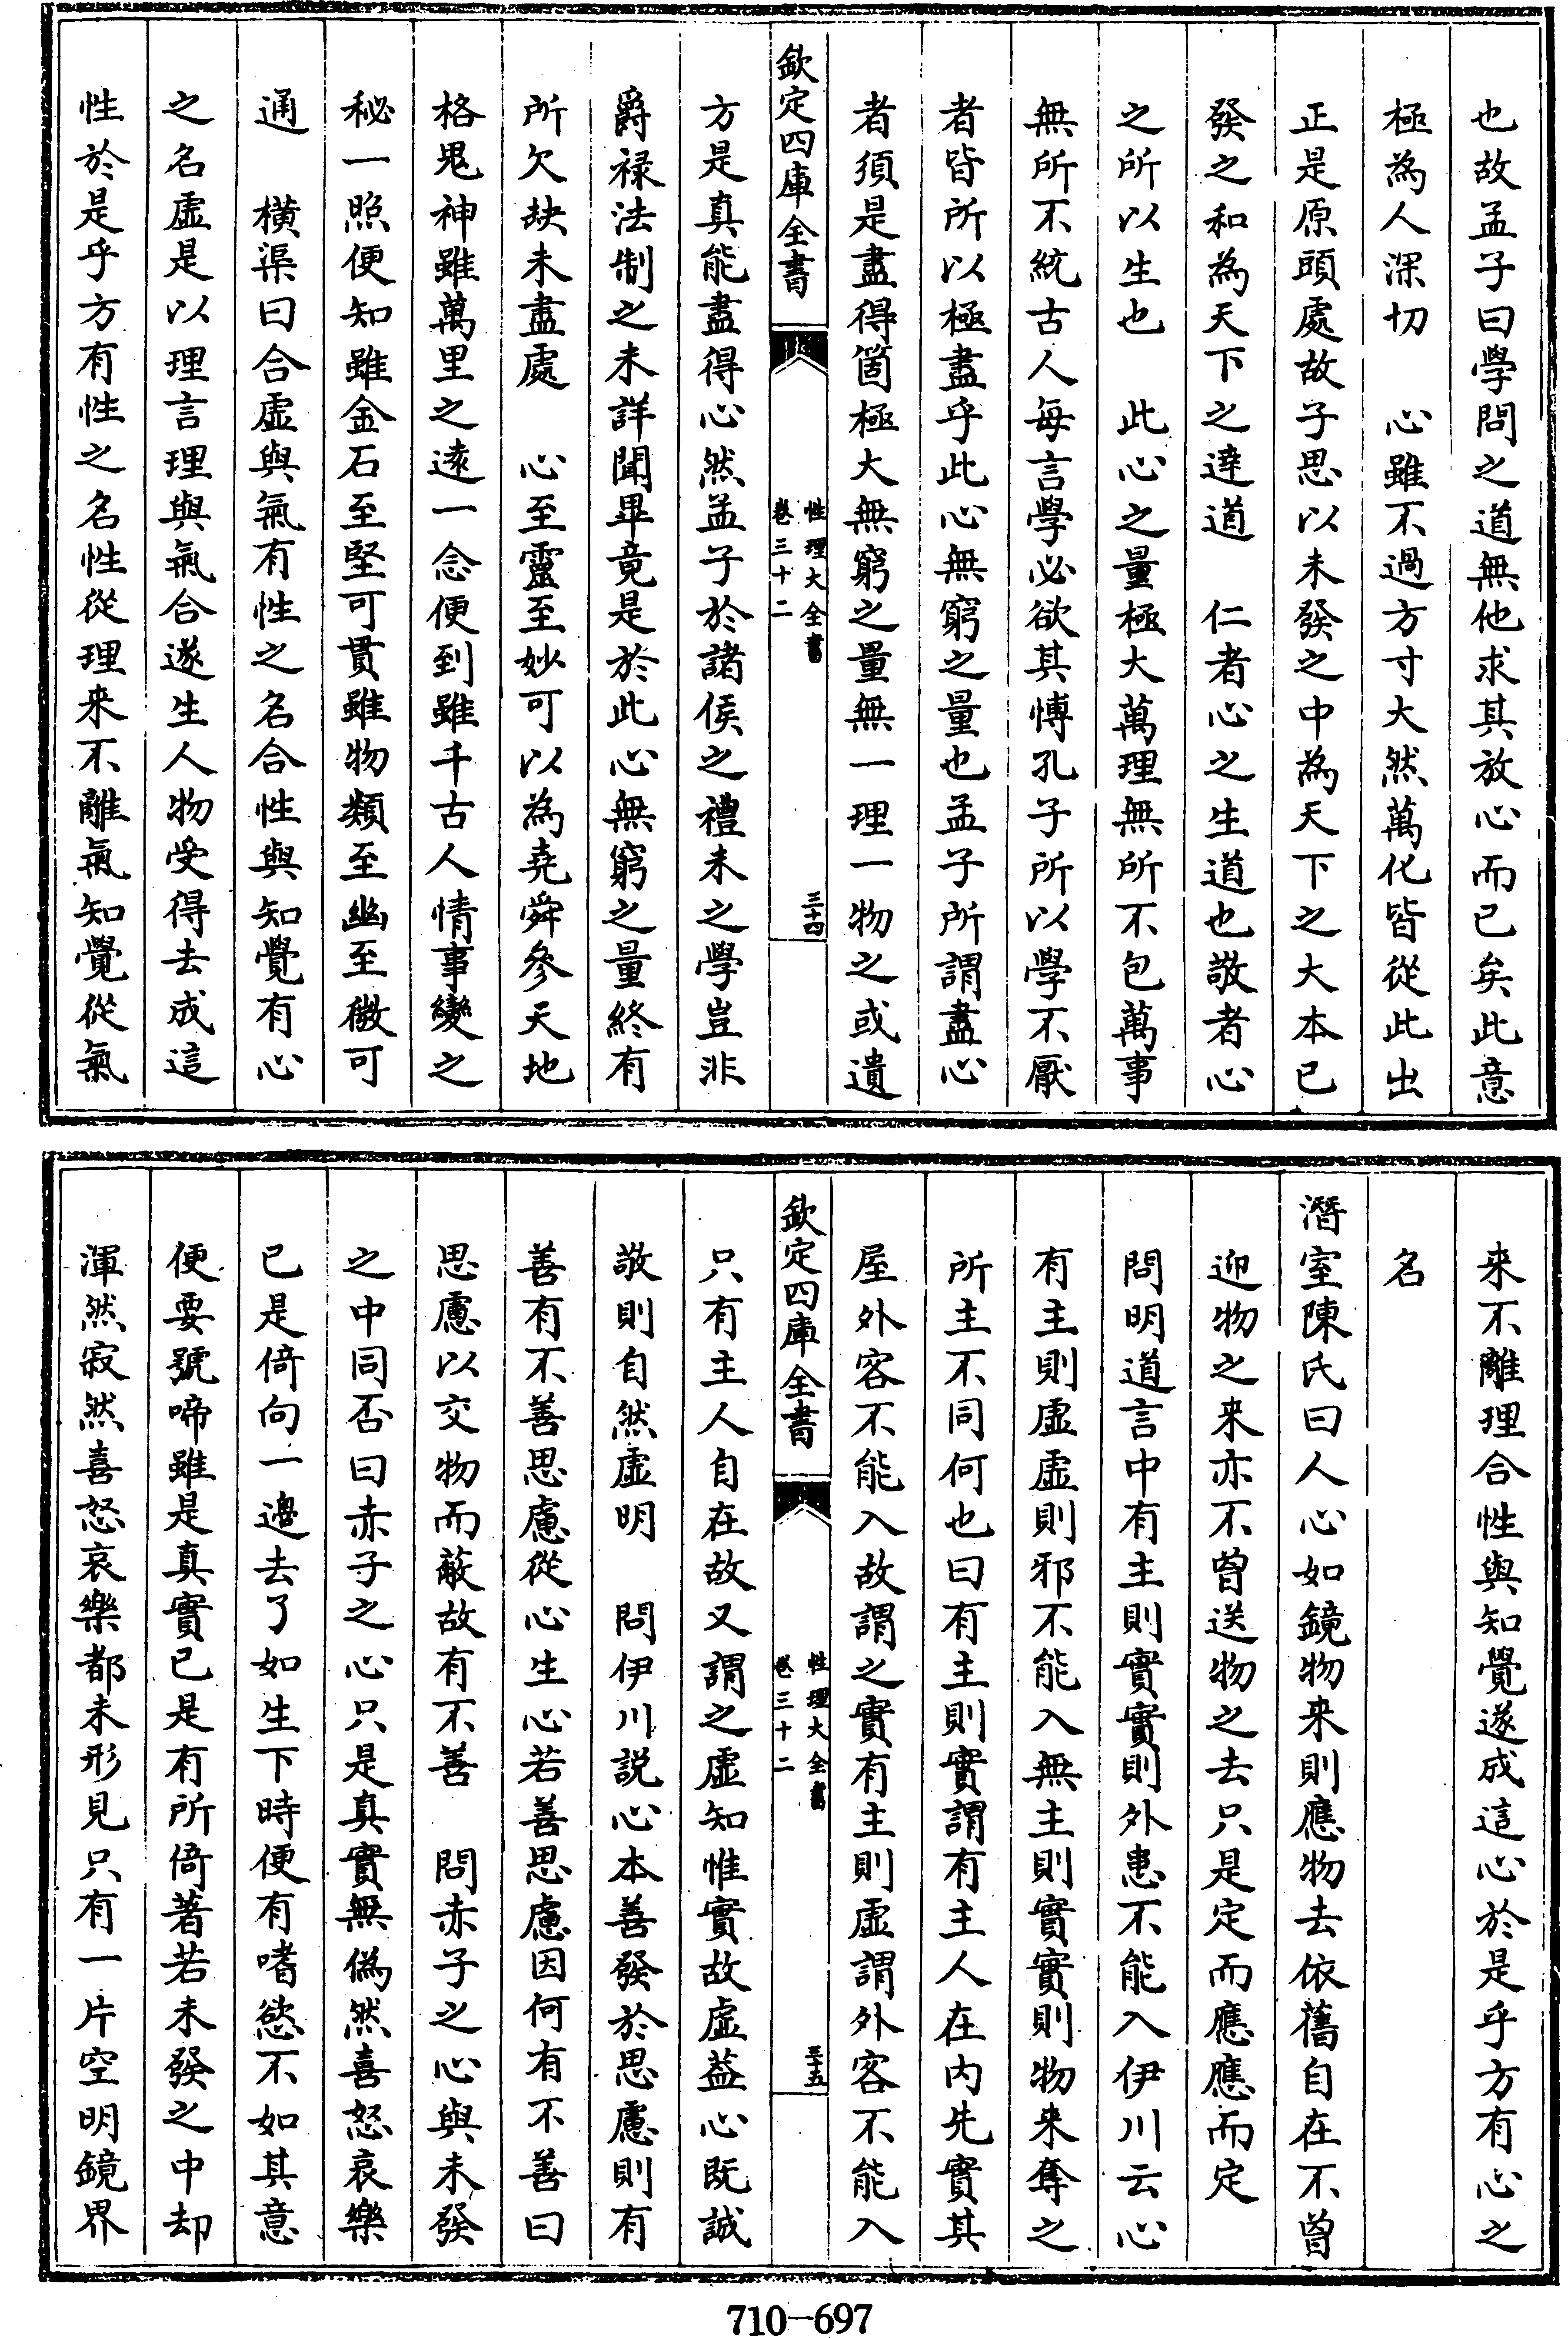 也故孟子曰學問之道無他求其放心而已矣此意
極為人深切　心雖不過方寸大然萬化皆從此出
正是原頭處故子思以未發之中為天下之大本已
發之和為天下之達道　仁者心之生道也敬者心
之所以生也　此心之量極大萬理無所不包萬事
無所不統古人每言學必欲其博孔子所以學不厭
者皆所以極盡乎此心無窮之量也孟子所謂盡心
者須是盡得箇極大無窮之量無一理一物之或遺
欽定四庫全書
性理大全書
卷三十二
三十四
方是真能盡得心然孟子於諸侯之禮未之學豈非
爵祿法制之未詳聞畢竟是於此心無窮之量終有
所欠缺未盡處　心至靈至妙可以為堯舜參天地
格鬼神雖萬里之遠一念便到雖千古人情事變之
秘一照便知雖金石至堅可貫雖物類至幽至微可
通　橫渠曰合虛與氣有性之名合性與知覺有心
之名虛是以理言理與氣合遂生人物受得去成這
性於是乎方有性之名性從理來不離氣知覺從氣
來不離理合性與知覺遂成這心於是乎方有心之
名
潛室陳氏曰人心如鏡物來則應物去依舊自在不曾
迎物之來亦不曾送物之去只是定而應應而定
問明道言中有主則實實則外患不能入伊川云心
有主則虛虛則邪不能入無主則實實則物來奪之
所主不同何也曰有主則實謂有主人在內先實其
屋外客不能入故謂之實有主則虛謂外客不能入
欽定四庫全書
性理大全書
卷三十二
三十五
只有主人自在故又謂之虛知惟實故虛蓋心既誠
敬則自然虛明　問伊川說心本善發於思慮則有
善有不善思慮從心生心若善思慮因何有不善曰
思慮以交物而蔽故有不善　問赤子之心與未發
之中同否曰赤子之心只是真實無偽然喜怒哀樂
已是倚向一邊去了如生下時便有嗜慾不如其意
便要號啼雖是真實已是有所倚著若未發之中却
渾然寂然喜怒哀樂都未形見只有一片空明鏡界
710-697